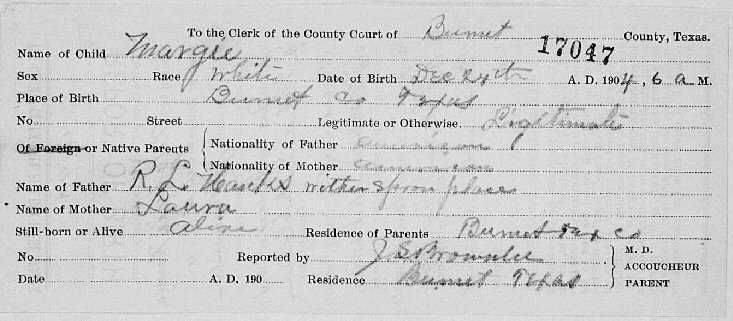 To the Clerk of the County Court of Burnet County, Texas.
17047
Name of Child Margie
Sex Race White Date of Birth Dec 24th A. D. 1904, 6 a M.
Place of Birth Burnet Co Texas
No. Street Legitimate or Otherwise. Legitimate
Of Foreign or Native Parents { Nationality of Father american
Nationality of Mother american
Name of Father R. L. place
Name of Mother Laura
Still-born or Alive alive Residence of Parents Burnet Tex Co
No. Reported by J S Brownlee } M. D.
ACCOUCHEUR
Date A. D. 190 Residence Burnet Texas PARENT